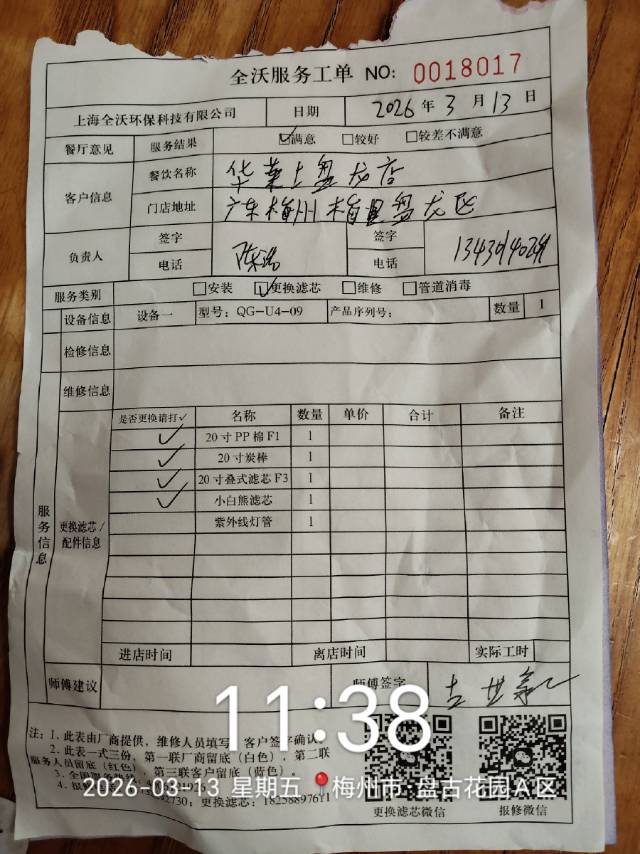 全沃服务工单 NO: 0018017
上海全沃环保科技有限公司 日期 2026年3月13日
餐厅意见 服务结果 ☑满意 □较好 □较差不满意
客户信息 餐饮名称 华莱士盘龙店
门店地址 广东梅州梅县盘龙区
负责人 签字 签字
电话 电话
服务类别 □安装 ☑更换滤芯 □维修 □管道消毒
设备信息 设备一 型号: QG-U4-09 产品序列号: 数量 1
检修信息
维修信息
服务信息
更换滤芯/配件信息
是否更换请打✓ 名称 数量 单价 合计 备注
✓ 20寸PP棉F1 1
✓ 20寸炭棒 1
✓ 20寸叠式滤芯F3 1
✓ 小白熊滤芯 1
紫外线灯管 1
进店时间 离店时间 实际工时
师傅建议 师傅签字
11:38
注: 1. 此表由厂商提供、维修人员填写、客户签字确认。
2. 此表一式三份、第一联厂商留底(白色)、第二联
服务人员留底(红色)、第三联客户留底(蓝色)。
2026-03-13 星期五 梅州市·盘古花园A区
更换滤芯:
更换滤芯微信 报修微信